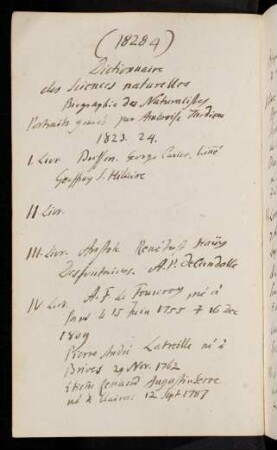 (1828a)
Dictionnaire
des sciences naturelles
Biographie des Naturalistes
Portraits gravés par Ambroise Tardieu
1823. 24.
I. Livr. Buffon. George Cuvier. Linné
Geoffroy S. Hilaire
II Livr.
III. Livr. Aristote René Just Haüy
Desfontaines. A. P. DeCandolle
IV Livr. A. F. de Fourcroy né à
Paris le 15 Juin 1755 † 16 Dec
1809
Pierre André Latreille né à
Brives 29 Nov. 1762
Etienne Renaud Augustin Serre
né à Clairac 12 Sept 1787